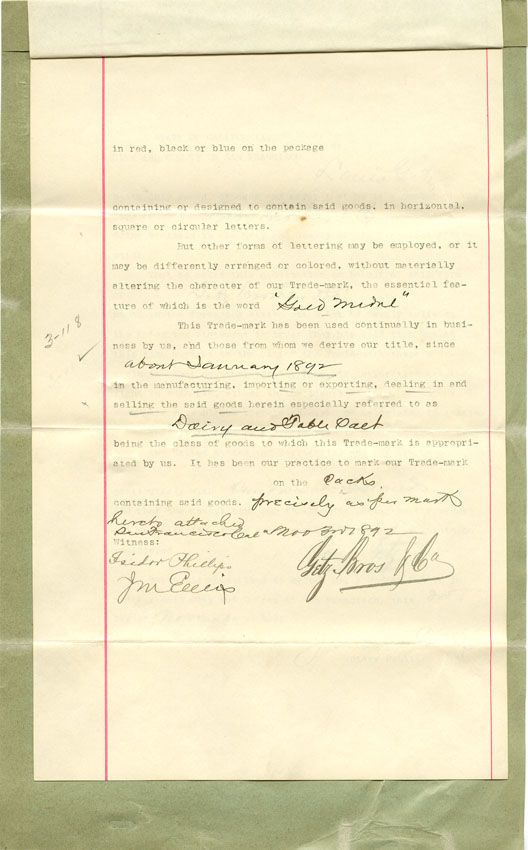 in red, black or blue on the package
containing or designed to contain said goods, in horizontal,
square or circular letters.
But other forms of lettering may be employed, or it
may be differently arranged or colored, without materially
altering the character of our Trade-mark, the essential fea-
ture of which is the word "Gold Medal"
This Trade-mark has been used continually in busi-
ness by us, and those from whom we derive our title, since
about January 1892
in the manufacturing, importing or exporting, dealing in and
selling the said goods herein especially referred to as
Dairy and Table Salt
being the class of goods to which this Trade-mark is appropri-
ated by us. It has been our practice to mark our Trade-mark
on the sacks
containing said goods. precisely as per mark
hereto attached
San Francisco Cal Nov 1892
Witness:
Isidor Phillips
Getz Bros & Co
J M Ellis
3-118